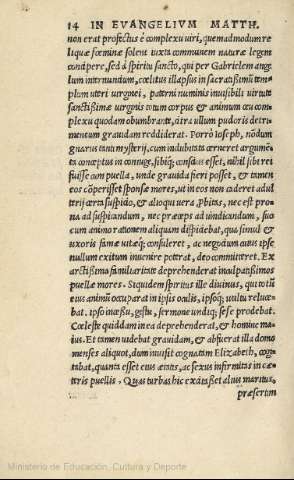 14 IN EVANGELIVM MATTH.
non erat profectus è complexu viri, quemadmodum re
liquæ fœminæ solent iuxta communem naturæ legem
concipere, sed à spiritu sancto, qui per Gabrielem ange
lum internundum, cœlitus illapsus in sacratissimũ tem
plum uteri uirginei, paterni numinis inuisibili uirtute
sanctissimæ uirginis totum corpus & animum ceu com
plexu quodam obumbrante, citra ullum pudoris detri=
mentum grauidam reddiderat. Porrò Ioseph, nõdum
gnarus tanti mysterij, cum indubitatis cerneret argumẽ
tis conceptus in coniuge, sibiq; conscius esset, nihil sibi rei
fuisse cum puella, unde grauida fieri posset, & tamen
eos cõperisset sponsæ mores, ut in eos non caderet adul
terij certa suspicio, & alioqui uera ꝓbitas, nec est pro=
na ad suspicandum, nec præceps ad uindicandum, suo
cum animo rationem aliquam dispiciebat, qua simul &
uxoris famæ uitæq; consuleret, ac negocium cuius ipse
nullum exitum inuenire poterat, deo committeret. Ex
arctissima familiaritate deprehenderat inculpatissimos
puellæ mores. Siquidem spiritus ille diuinus, qui totũ
eius animũ occuparat in ipsis oculis, ipsoq; uultu relucæ=
bat. Ipso incessu, gestu, sermone undiq; sese prodebat.
Cœleste quiddam in ea deprehenderat, & homine ma=
ius. Et tamen uidebat grauidam, & abfuerat illa domo
menses aliquot, dum inuisit cognatam Elizabeth, cogi
tabat, quanta esset eius ætatis, ac sexus infirmitas in cæ=
teris puellis. Quas turbas hic excitasset alius maritus,
præsertim
Ministerio de Educación, Cultura y Deporte